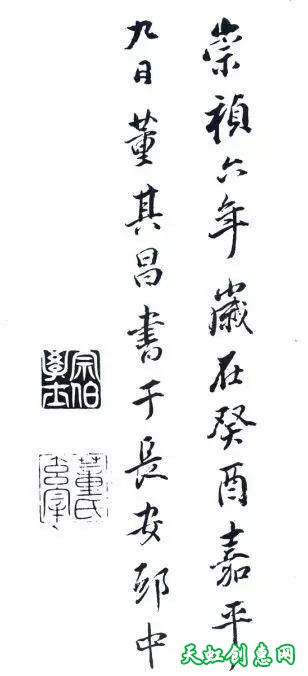 崇禎六年歲在癸酉嘉平
九日董其昌書于長安邸中
宗伯學士
董氏玄宰
天虹创意网